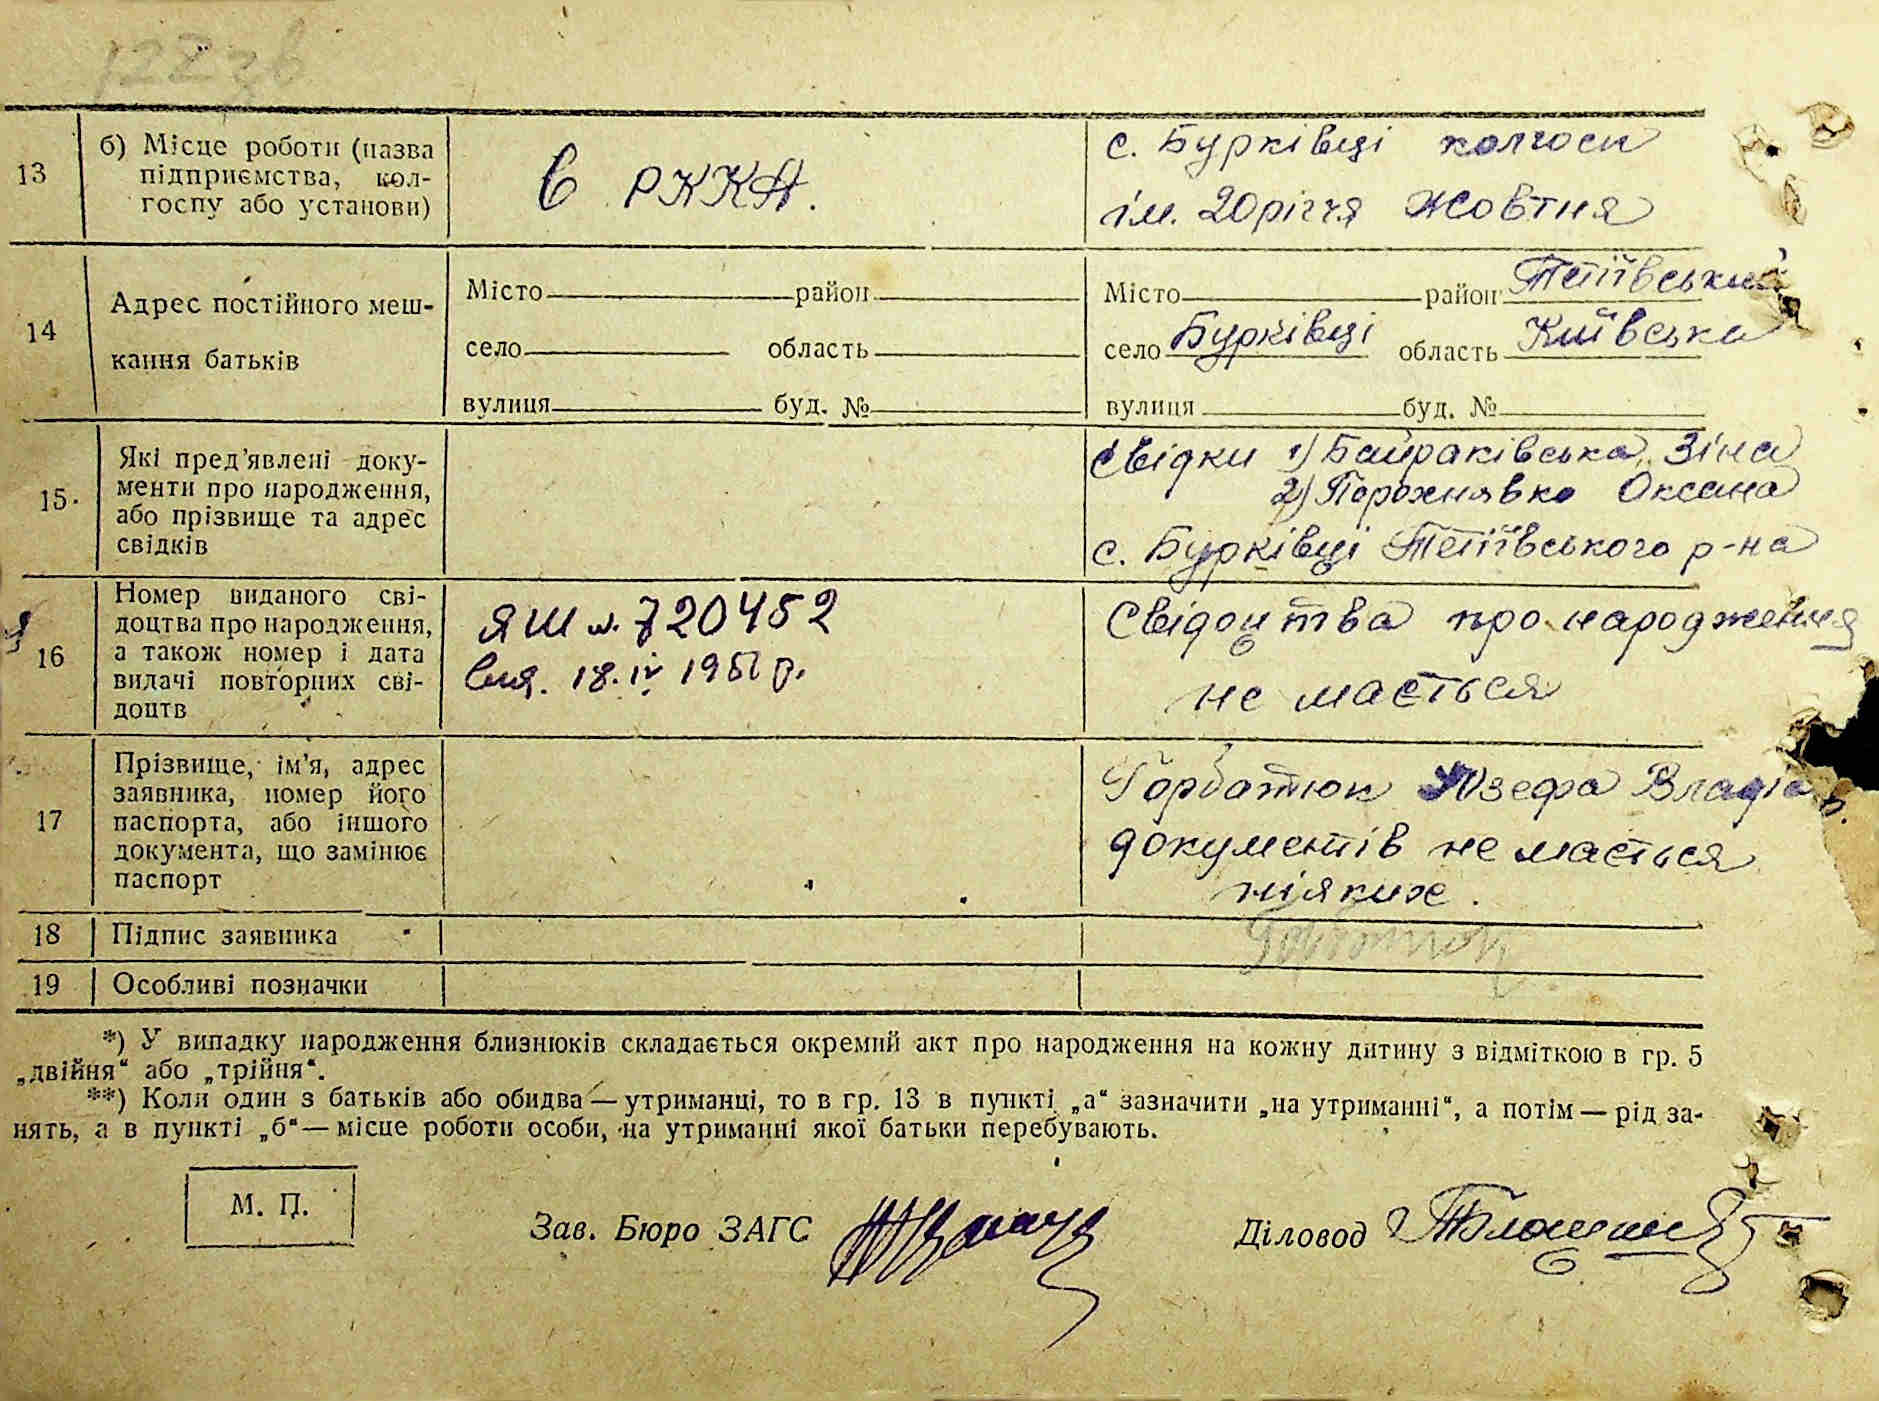 122зв
13 б) Місце роботи (назва підприємства, колгоспу або установи) В РККА. с. Бурківці колгосп
ім. 20річчя Жовтня
14 Адрес постійного мешкання батьків
Місто район Місто район Тетіївський
село область село Бурківці область Київська
вулиця буд. № вулиця буд. №
15. Які пред'явлені документи про народження, або прізвище та адрес свідків
Свідки 1) Байраківська Зіна
2) Порожнявко Оксана
с. Бурківці Тетіївського р-на
16 Номер виданого свідоцтва про народження, а також номер і дата видачі повторних свідоцтв
ЯШ №. 720452
18. IV 195 р.
Свідоцтва про народження
не мається
17 Прізвище, ім'я, адрес заявника, номер його паспорта, або іншого документа, що замінює паспорт
Горбатюк Юзефа Владів.
документів не мається
ніяких.
18 Підпис заявника
19 Особливі позначки
*) У випадку народження близнюків складається окремий акт про народження на кожну дитину з відміткою в гр. 5
„двійня“ або „трійня“.
**) Коли один з батьків або обидва — утриманці, то в гр. 13 в пункті „а“ зазначити „на утриманні“, а потім — рід за-
нять, а в пункті „б“ — місце роботи особи, на утриманні якої батьки перебувають.
М. П.
Зав. Бюро ЗАГС Діловод